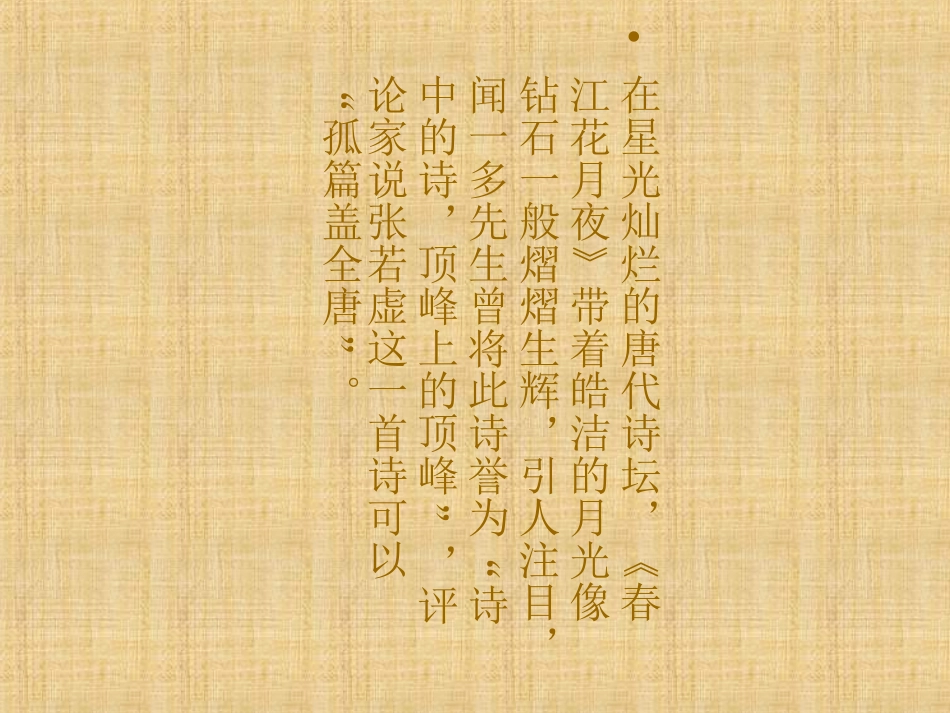 • 在星光灿烂的唐代诗坛，《春
江花月夜》带着皓洁的月光像
钻石一般熠熠生辉，引人注目，
闻一多先生曾将此诗誉为“诗
中的诗，顶峰上的顶峰”，评
论家说张若虚这一首诗可以
“孤篇盖全唐”。